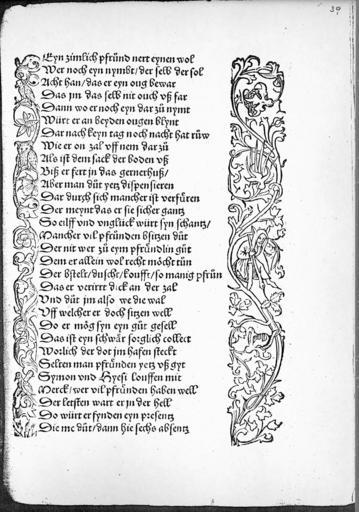 39
Eyn zimlich pfründ nert eynen wol
Wer noch eyn nymbt/der selb der sol
Acht han/das er eyn oug bewar
Das jm das selb nit ouch vß far
Dann wo er noch eyn dar zů nymt
Würt er an beyden ougen blynt
Dar nach keyn tag noch nacht hat růw
Wie er on zal vff nem dar zů
Als ist dem sack der boden vß
Biß er fert jn das gernerhuß/
Aber man důt yetz dispensieren
Dar durch sich mancher ist verfüren
Der meynt das er sie sicher gantz
So eilff vnd vnglück würt syn schantz/
Mancher vil pfründen bsitzen důt
Der nit wer zů eym pfründlin gůt
Dem er allein wol recht möcht tůn
Der bstelt/duscht/koufft/so manig pfrün
Das er verirrt dick an der zal
Vnd důt jm also we die wal
Vff welcher er doch sitzen well
Do er mög syn eyn gůt gesell
Das ist eyn schwär sorglich collect
Worlich der dot jm hafen steckt
Selten man pfründen yetz vß gyt
Symon vnd Hyesi louffen mit
Merck/wer vil pfründen haben well
Der letsten wart er jn der hell
Do würt er fynden eyn presentz
Die me důt/dann hie sechs absentz